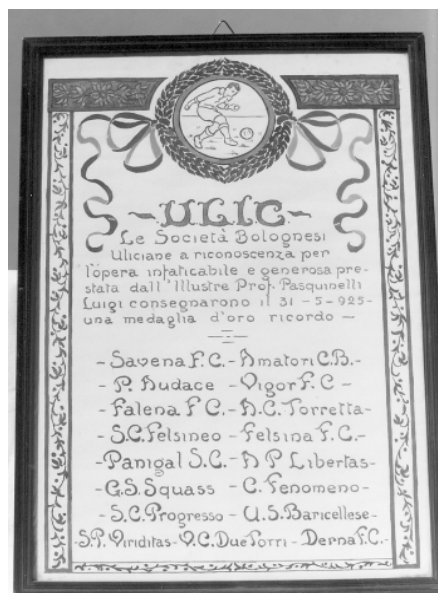 ~ULIC~
Le Società Bolognesi
Uliciane a riconoscenza per
l'opera infaticabile e generosa pre-
stata dall'Illustre Prof. Pasquinelli
Luigi consegnarono il 31-5-925-
una medaglia d'oro ricordo -
-Savena F.C.- Amatori C.B.-
-P. Audace - Vigor F.C-
-Falena F C.- A.C. Torretta-
-S.C. Felsineo - Felsina F.C.-
-Panigal S.C.- A P Libertas-
-G.S. Squass - C. Fenomeno-
-S.C. Progresso - U.S. Baricellese-
-S.P. Viriditas- V.C. Due Torri - Derna F.C.-